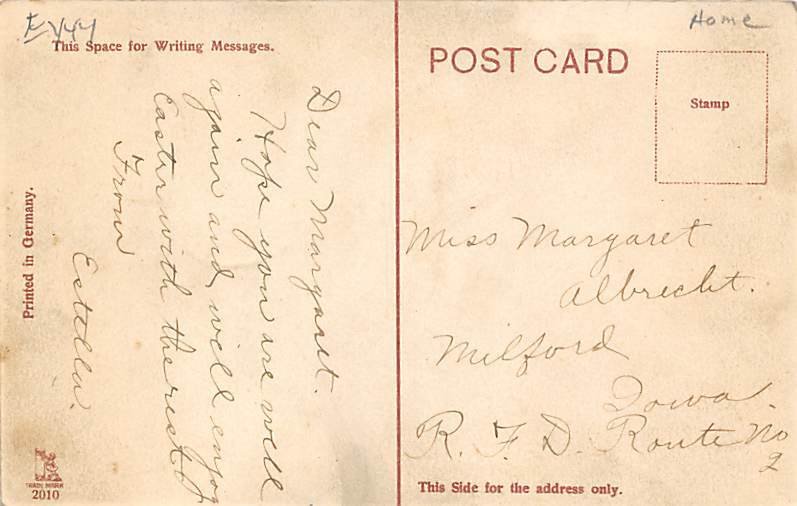 EV44
This Space for Writing Messages.
Dear Margaret.
Hope you are well
again and will enjoy
Easter with the rest
From
Estella.
Printed in Germany.
TRADE MARK
2010
Home
POST CARD
Stamp
Miss Margaret
Albrecht.
Milford
Iowa.
R. F. D. Route No
2
This Side for the address only.